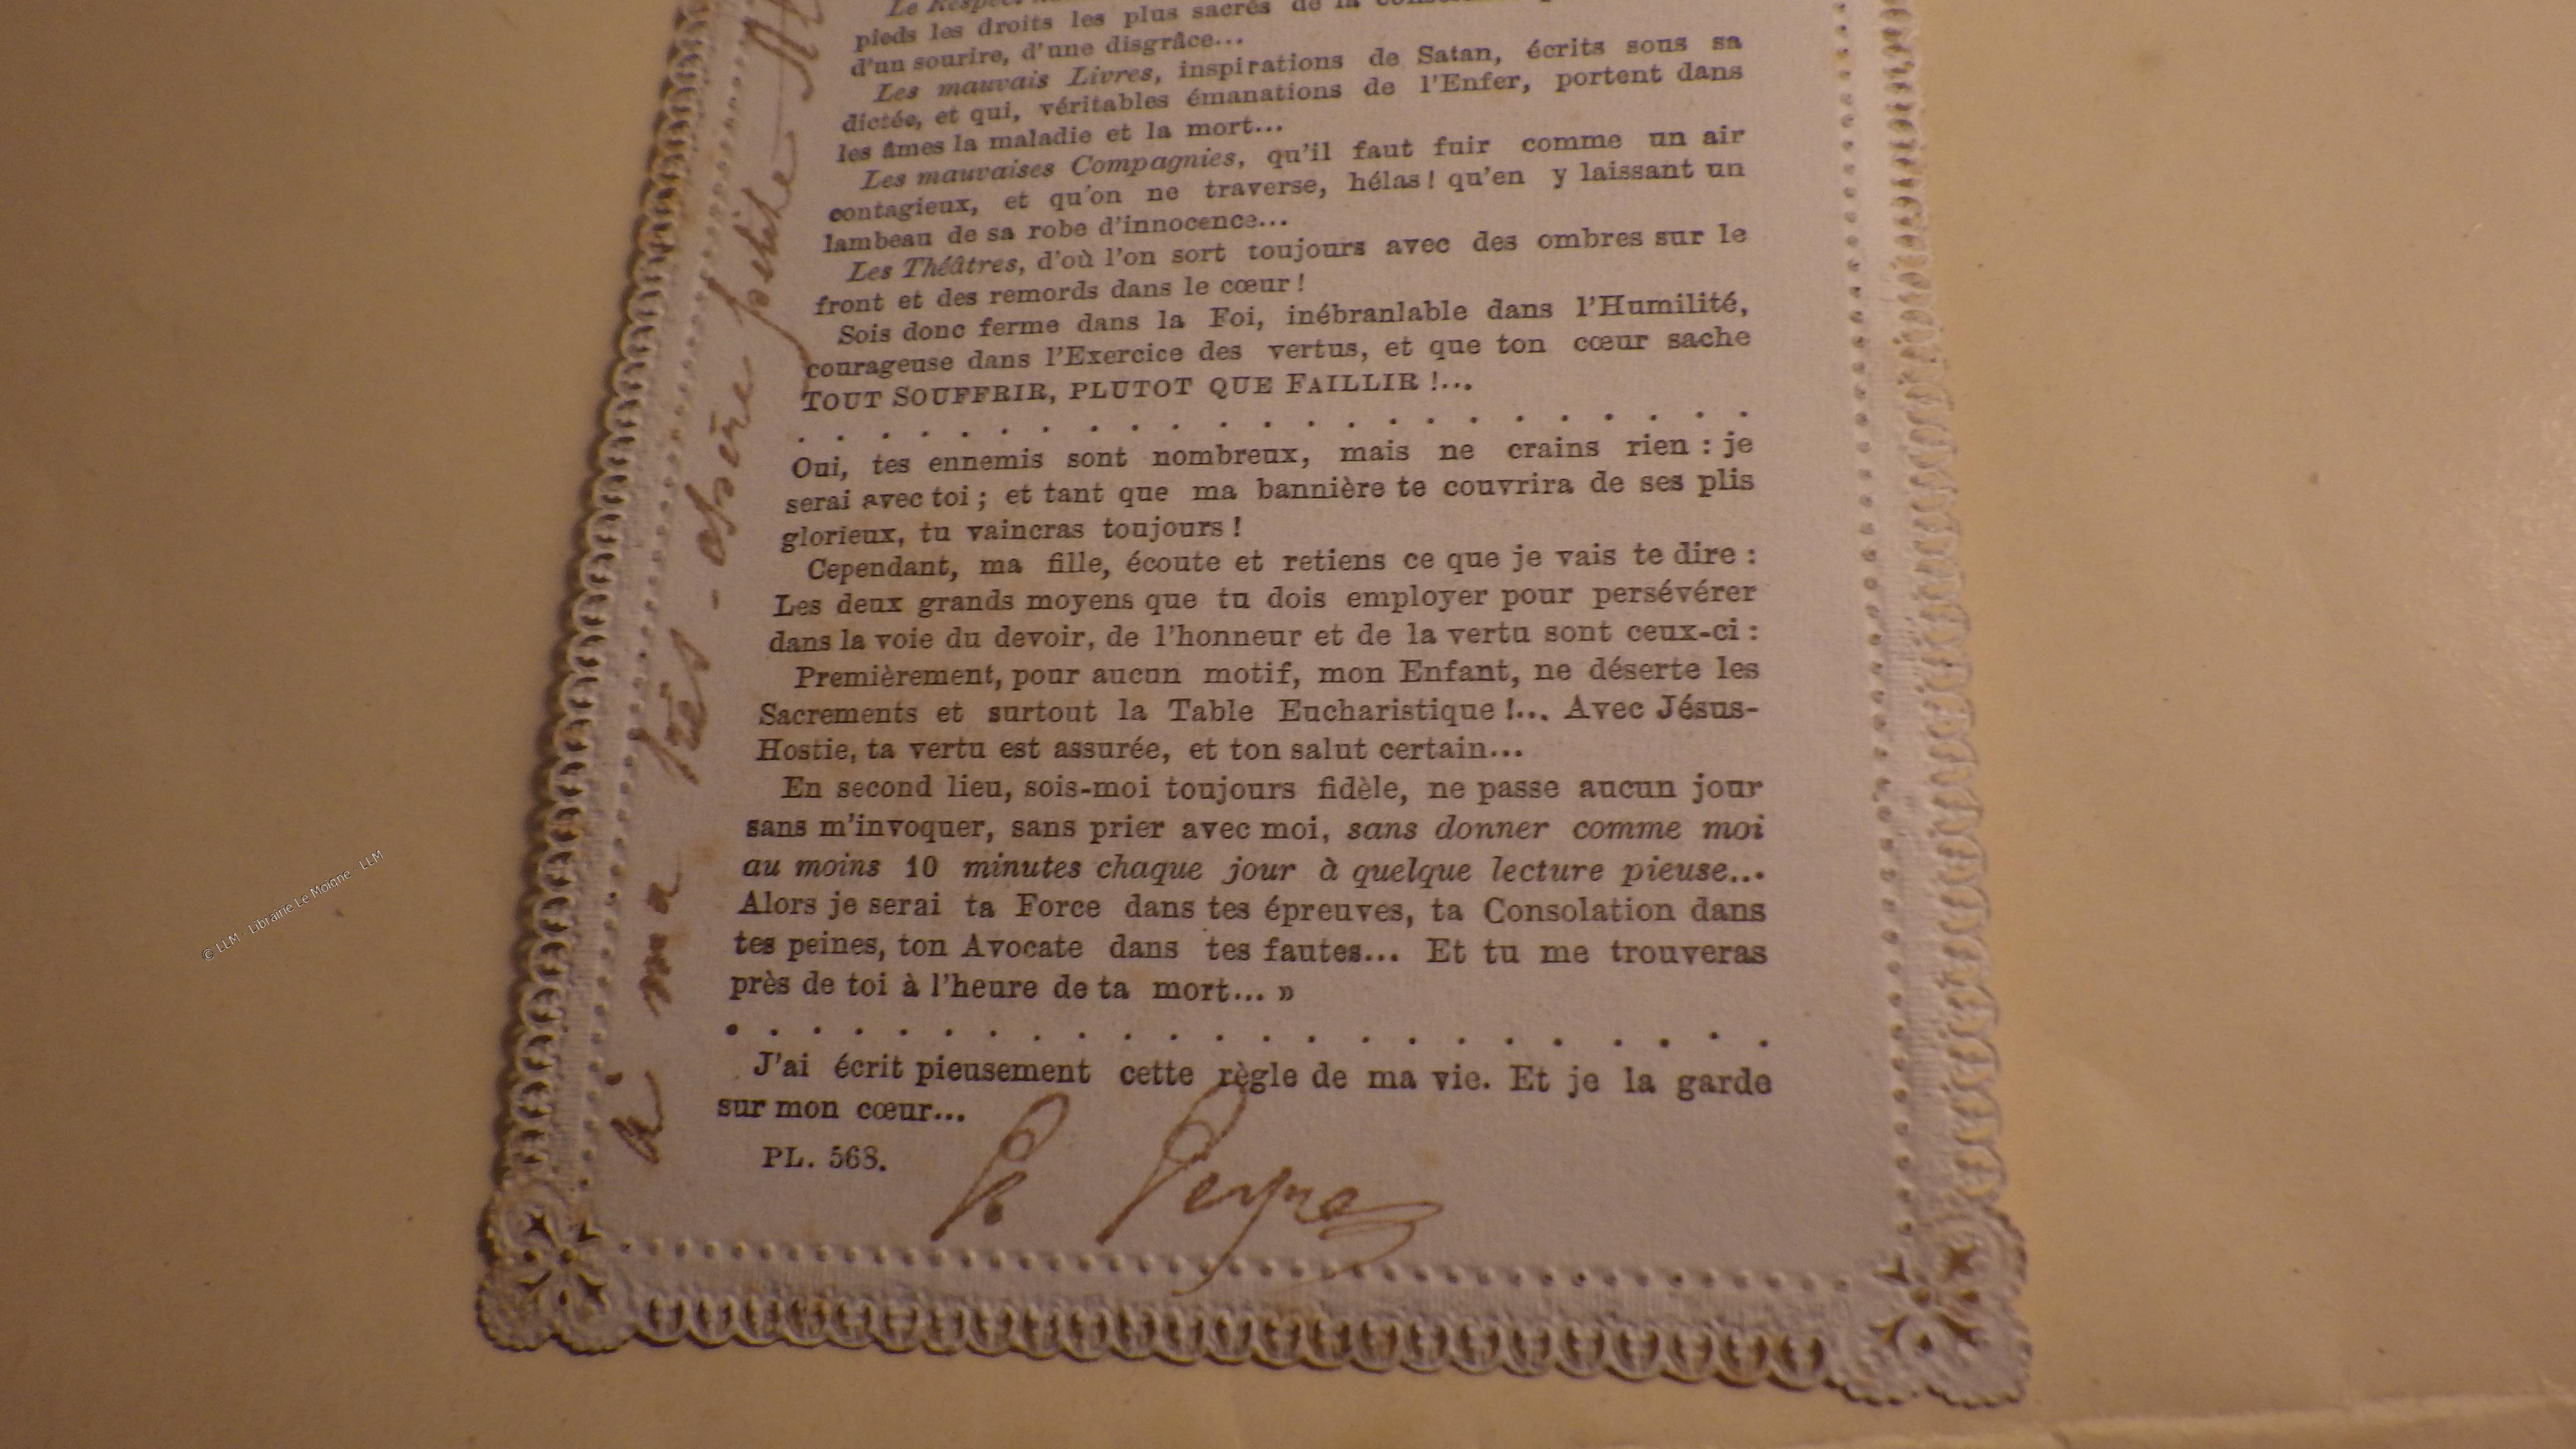 Le Respect
pieds les droits les plus sacrés de la
d'un sourire, d'une disgrâce...
Les mauvais Livres, inspirations de Satan, écrits sous sa
dictée, et qui, véritables émanations de l'Enfer, portent dans
les âmes la maladie et la mort...
Les mauvaises Compagnies, qu'il faut fuir comme un air
contagieux, et qu'on ne traverse, hélas! qu'en y laissant un
lambeau de sa robe d'innocence...
Les Théâtres, d'où l'on sort toujours avec des ombres sur le
front et des remords dans le cœur!
Sois donc ferme dans la Foi, inébranlable dans l'Humilité,
courageuse dans l'Exercice des vertus, et que ton cœur sache
TOUT SOUFFRIR, PLUTOT QUE FAILLIR !...
. . . . . . . . . . . . . . . . . . . . . . . .
Oui, tes ennemis sont nombreux, mais ne crains rien : je
serai avec toi ; et tant que ma bannière te couvrira de ses plis
glorieux, tu vaincras toujours !
Cependant, ma fille, écoute et retiens ce que je vais te dire :
Les deux grands moyens que tu dois employer pour persévérer
dans la voie du devoir, de l'honneur et de la vertu sont ceux-ci :
Premièrement, pour aucun motif, mon Enfant, ne déserte les
Sacrements et surtout la Table Eucharistique !... Avec Jésus-
Hostie, ta vertu est assurée, et ton salut certain...
En second lieu, sois-moi toujours fidèle, ne passe aucun jour
sans m'invoquer, sans prier avec moi, sans donner comme moi
au moins 10 minutes chaque jour à quelque lecture pieuse...
Alors je serai ta Force dans tes épreuves, ta Consolation dans
tes peines, ton Avocate dans tes fautes... Et tu me trouveras
près de toi à l'heure de ta mort... »
. . . . . . . . . . . . . . . . . . . . . . . . .
J'ai écrit pieusement cette règle de ma vie. Et je la garde
sur mon cœur...
PL. 568.
à ma très-chère petite
© LLM - Librairie Le Moigne - LLM